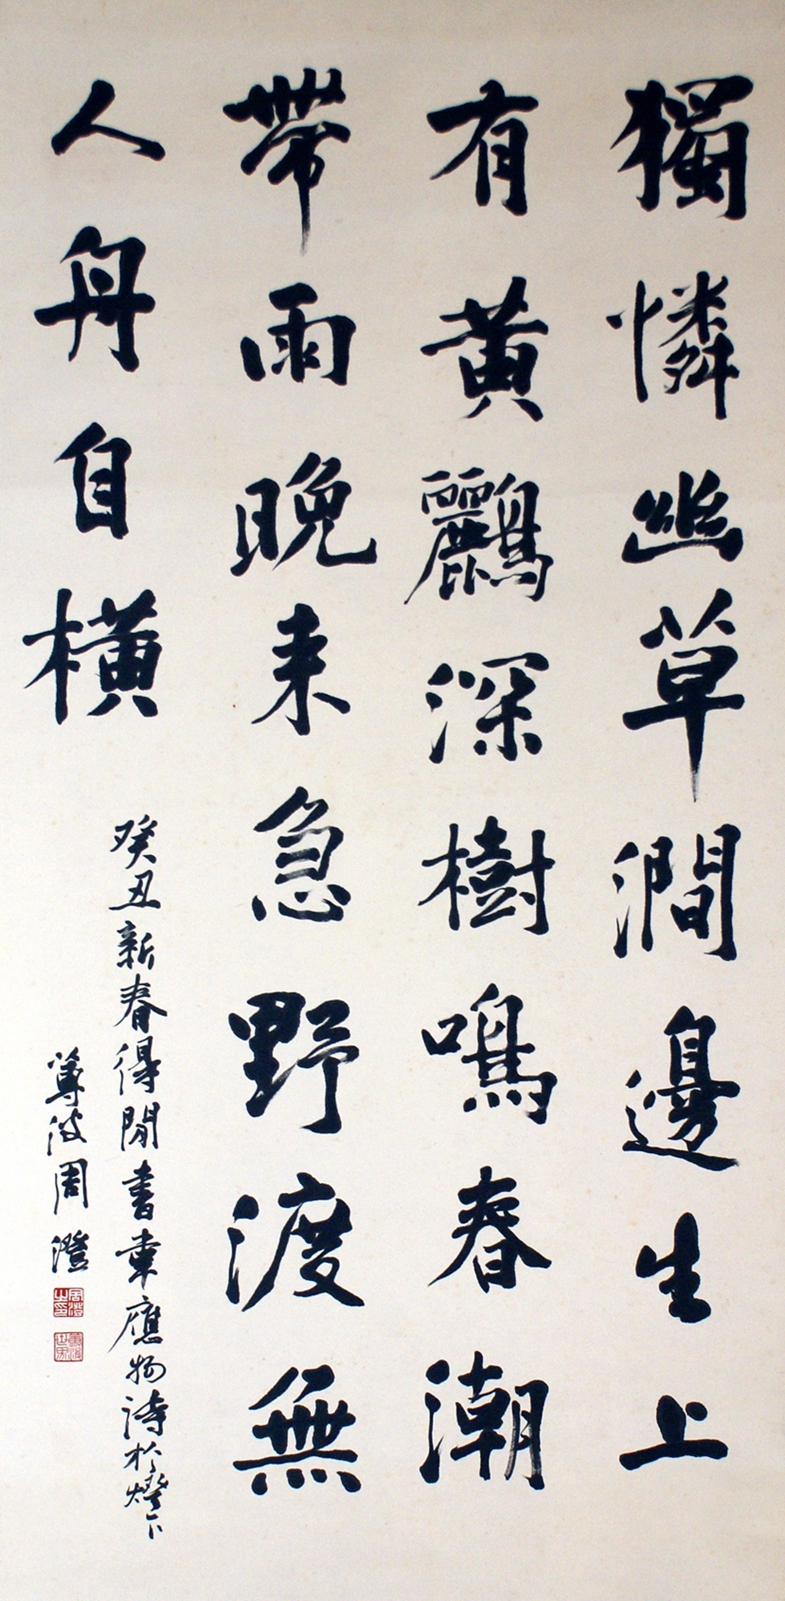 獨憐幽草澗邊生上
有黃鸝深樹鳴春潮
帶雨晚来急野渡無
人舟自橫
癸丑新春得閒書韋應物詩於燈下
蓴波周澄
周澄之印